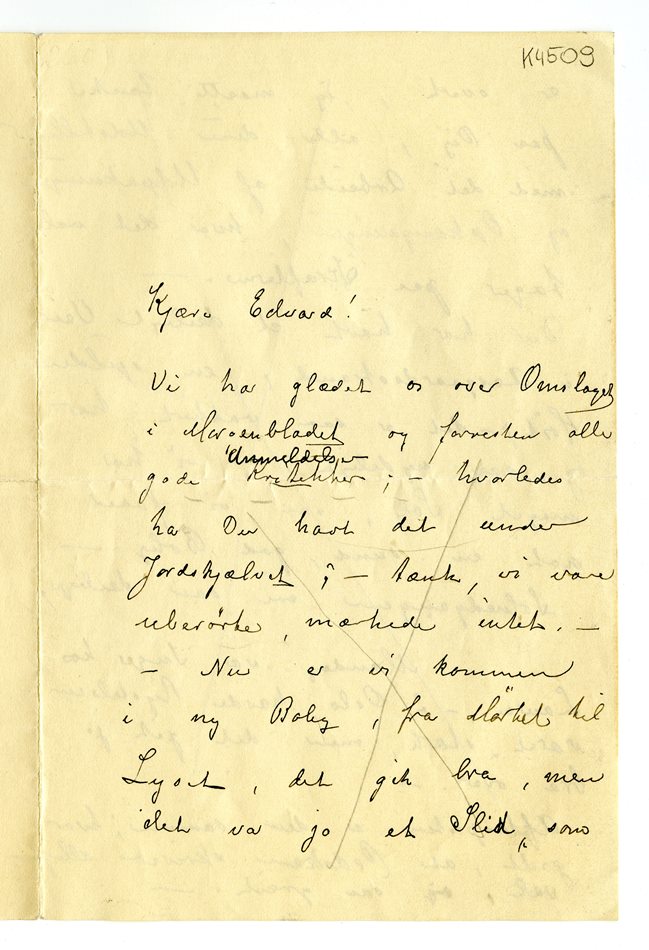 K4509
Kjære Edvard!
Vi har glædet os over Omslaget
i Morgenbladet og forresten alle
Anmeldelser
gode Kritikker; – hvorledes
har Du havt det under
Jordskjælvet? – tænk, vi vare
uberörte, mærkede intet. –
– Nu er vi kommen
i ny Bolig, fra Mörket til
Lyset, det gik bra, men
det var jo et Slid, som